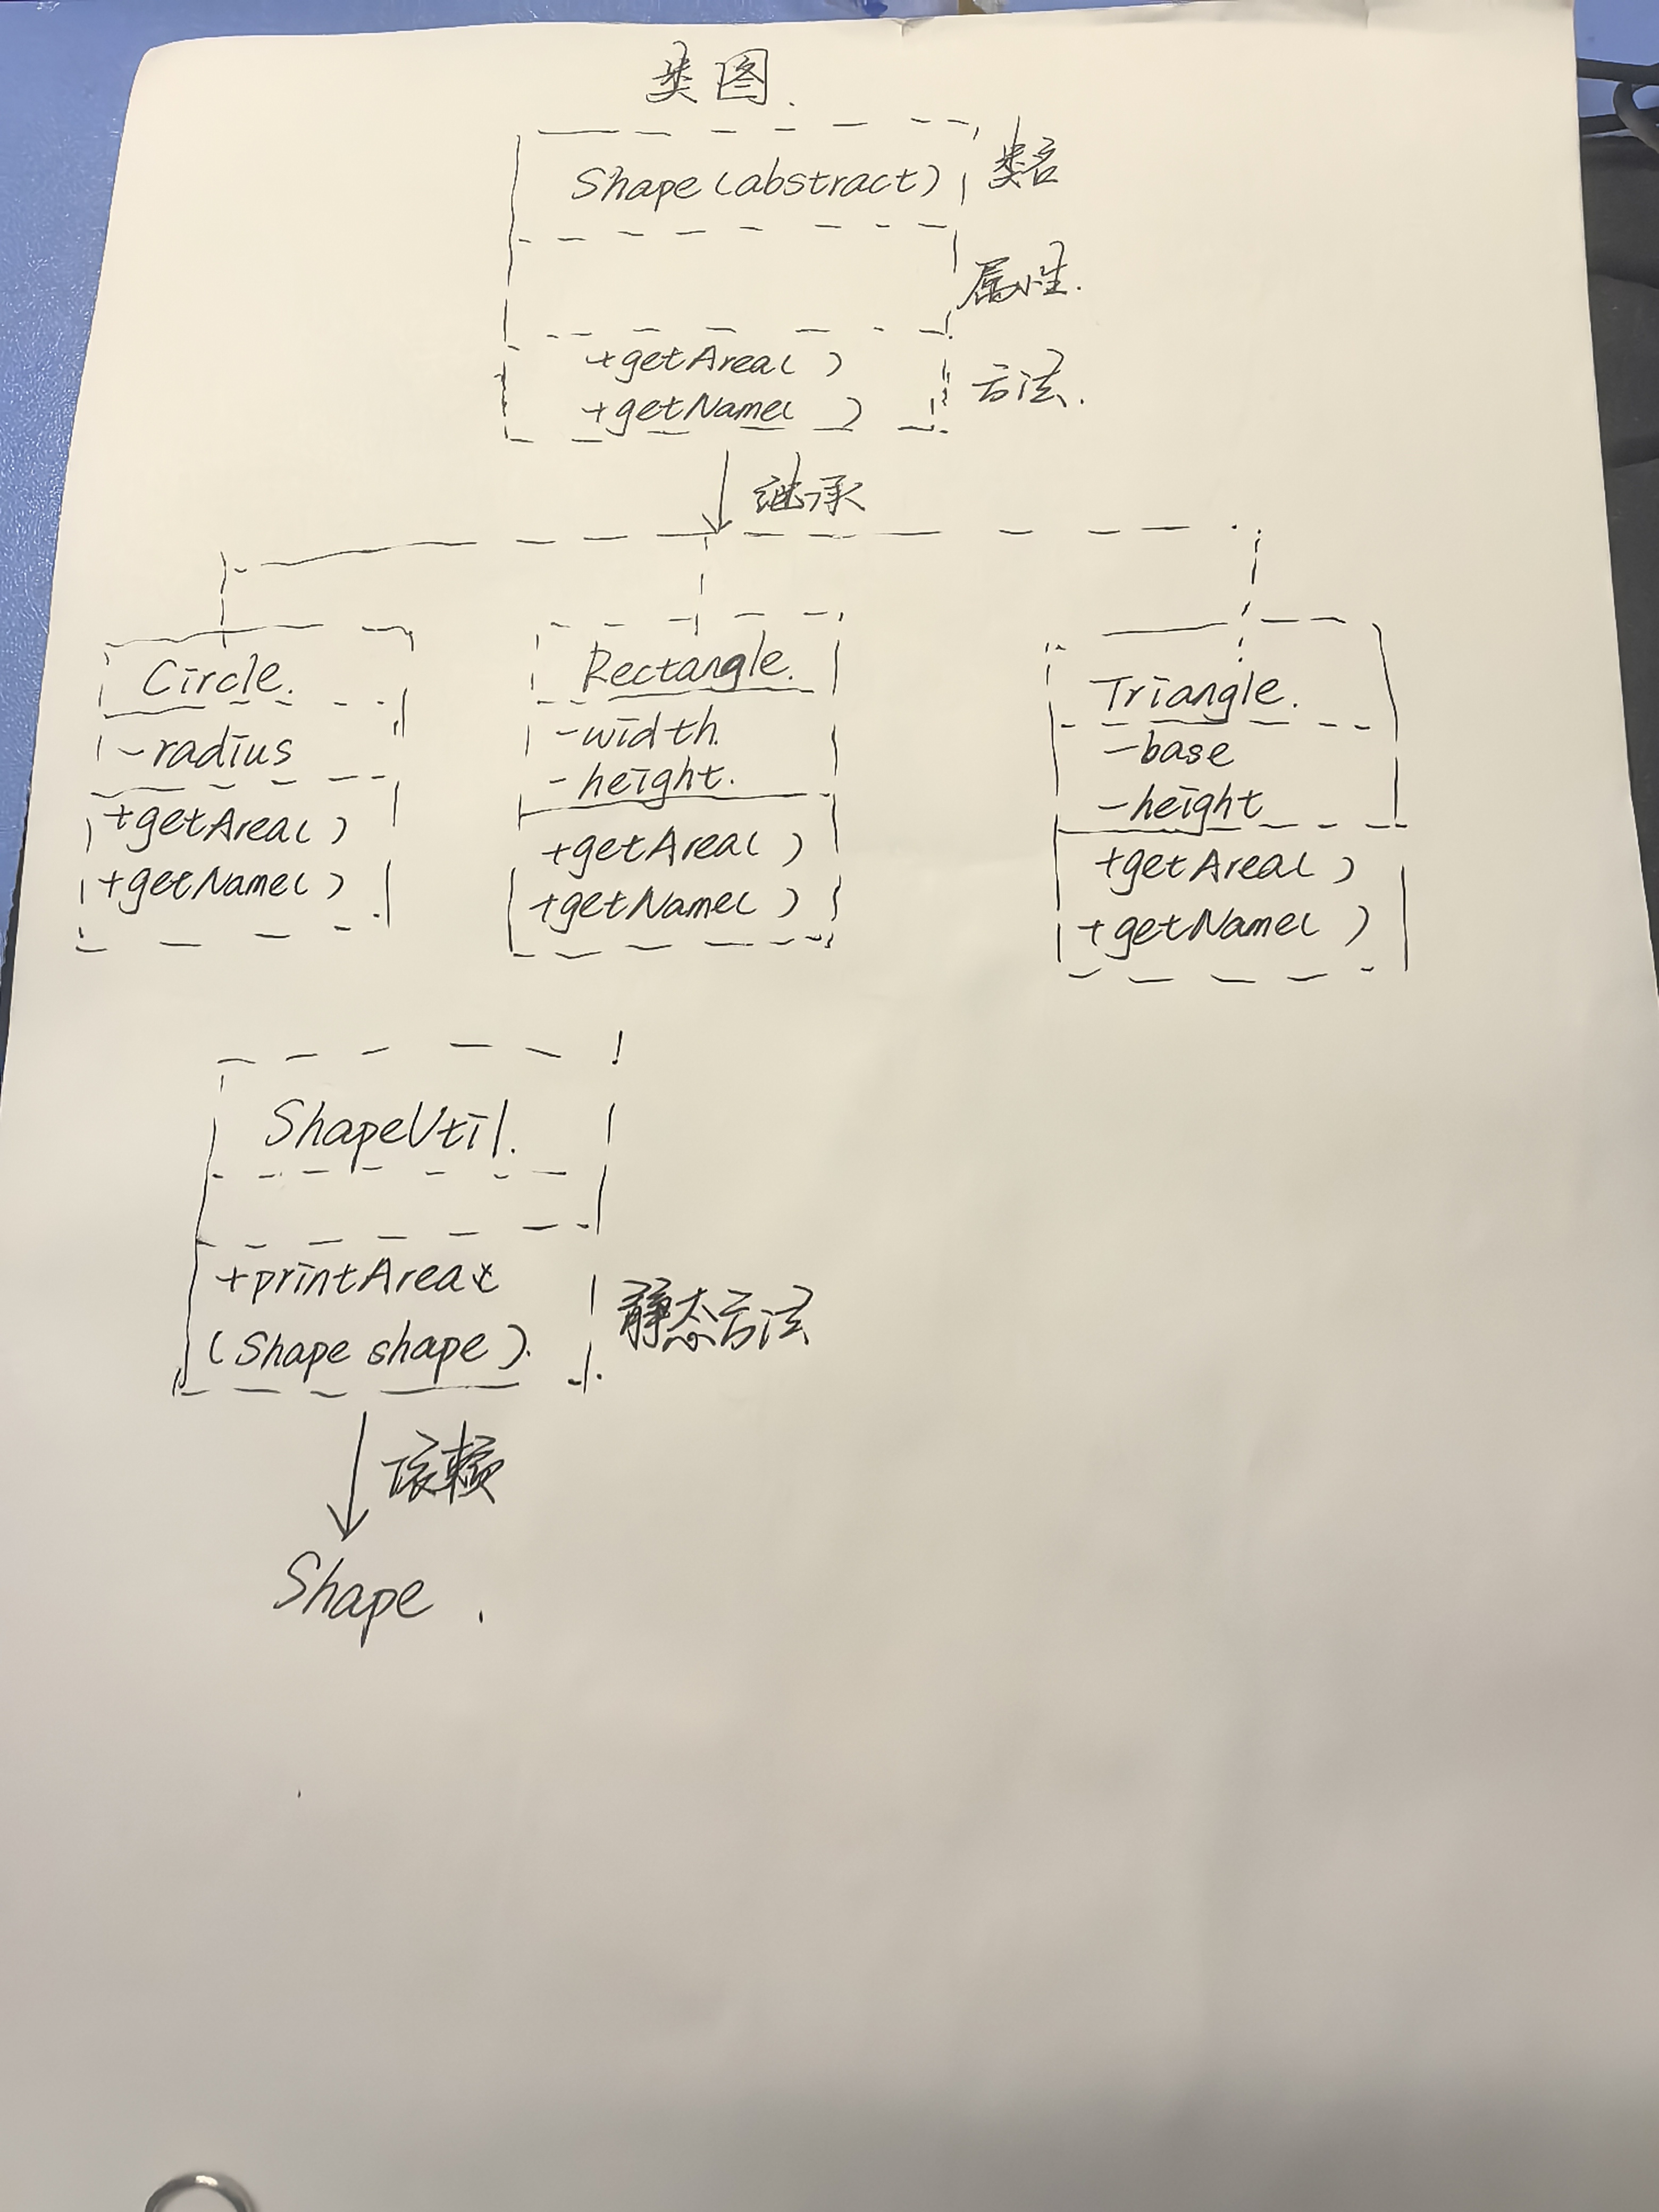 类图.
Shape(abstract) 类名
属性.
+getArea( )
+getName( )
方法.
继承
Circle.
-radius
+getArea( )
+getName( )
Rectangle.
-width.
-height.
+getArea( )
+getName( )
Triangle.
-base
-height
+getArea( )
+getName( )
ShapeUtil.
+printArea
(Shape shape).
静态方法
赖
Shape.